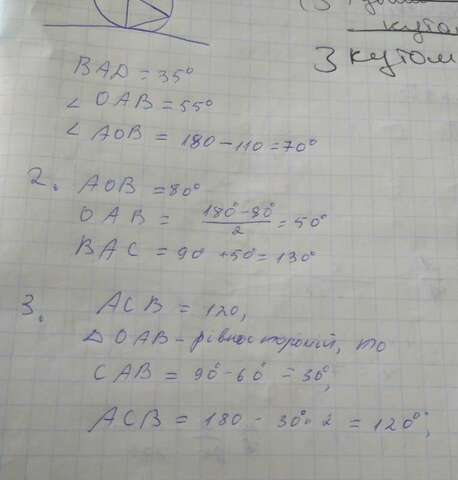 кутом
3 кутом
BAD = 35°
∠ OAB = 55°
∠ AOB = 180 - 110 = 70°
2. AOB = 80°
OAB = (180° - 80°)/2 = 50°
BAC = 90 + 50° = 130°
3. ACB = 120,
Δ OAB - рівносторонній, то
CAB = 90° - 60° = 30°;
ACB = 180 - 30° · 2 = 120°;